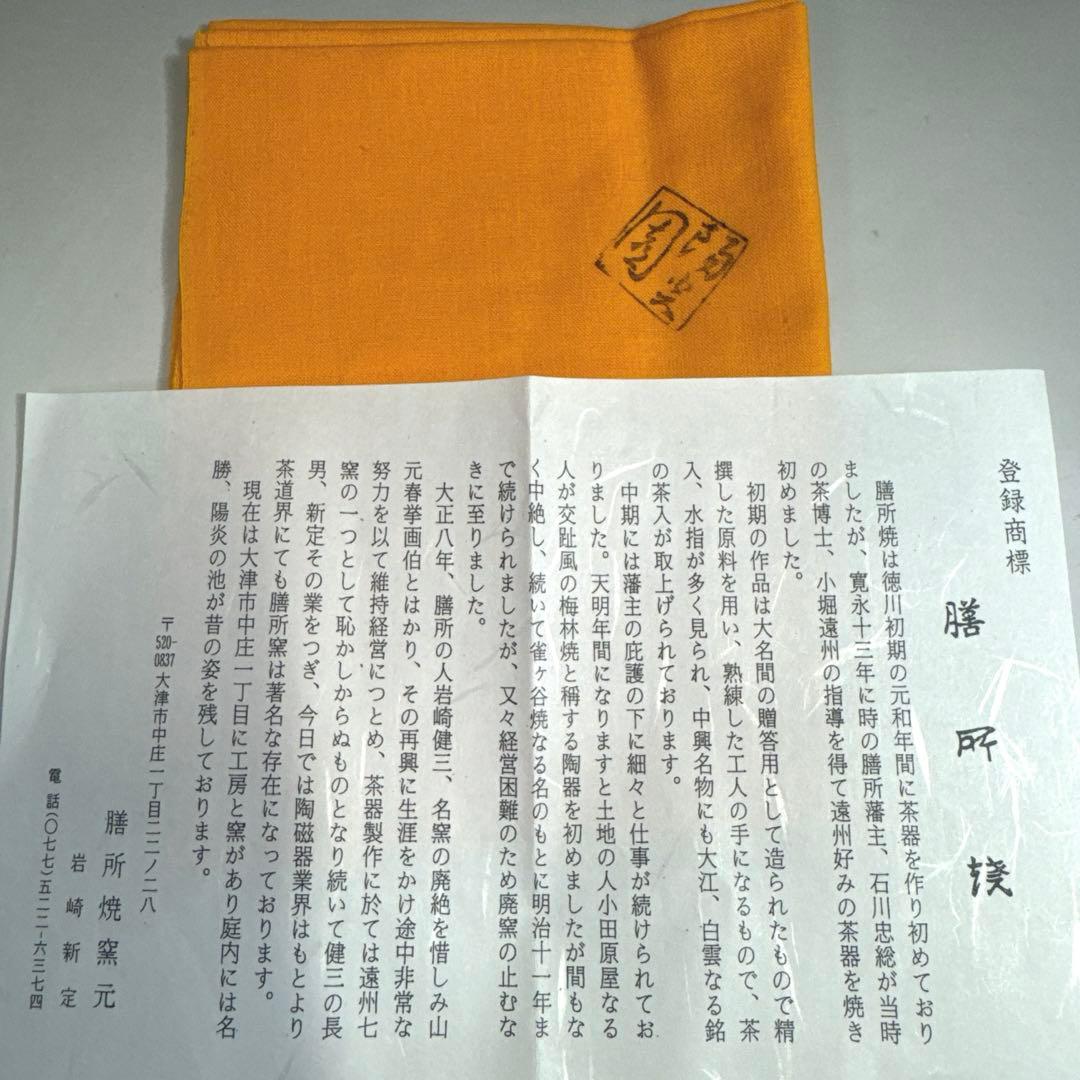 陽炎
園
登録商標
膳所焼
膳所焼は徳川初期の元和年間に茶器を作り初めており
ましたが、寛永十三年に時の膳所藩主、石川忠総が当時
の茶博士、小堀遠州の指導を得て遠州好みの茶器を焼き
初めました。
初期の作品は大名間の贈答用として造られたもので精
撰した原料を用い、熟練した工人の手になるもので、茶
入、水指が多く見られ、中興名物にも大江、白雲なる銘
の茶入が取上げられております。
中期には藩主の庇護の下に細々と仕事が続けられてお
りました。天明年間になりますと土地の人小田原屋なる
人が交趾風の梅林焼と稱する陶器を初めましたが間もな
く中絶し、続いて雀ヶ谷焼なる名のもとに明治十一年ま
で続けられましたが、又々経営困難のため廃窯の止むな
きに至りました。
大正八年、膳所の人岩崎健三、名窯の廃絶を惜しみ山
元春挙画伯とはかり、その再興に生涯をかけ途中非常な
努力を以て維持経営につとめ、茶器製作に於ては遠州七
窯の一つとして恥かしからぬものとなり続いて健三の長
男、新定その業をつぎ、今日では陶磁器業界はもとより
茶道界にても膳所窯は著名な存在になっております。
現在は大津市中庄一丁目に工房と窯があり庭内には名
勝、陽炎の池が昔の姿を残しております。
〒520-0837 大津市中庄一丁目二二ノ二八
膳所焼窯元
岩崎新定
電話(〇七七)五二二-六三七四